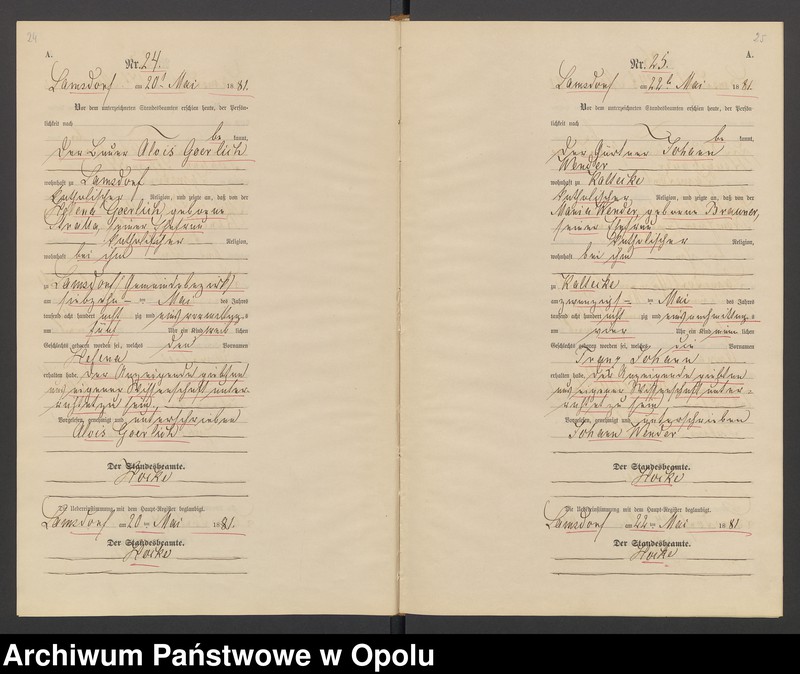 24
A.
Nr. 24.
Lamsdorf am 20t Mai 1881.
Vor dem unterzeichneten Standesbeamten erschien heute, der Persön-
lichkeit nach
be kannt,
der Bauer Alois Goerlich
wohnhaft zu Lamsdorf
katholischer Religion, und zeigte an, daß von der
Helena Goerlich geborene
seiner Ehefrau
katholischer Religion,
wohnhaft bei ihm
zu Lamsdorf Gemeindebezirk
am siebzehn ten Mai des Jahres
tausend acht hundert acht zig und eins vormittags
um fünf Uhr ein Kind weib lichen
Geschlechts geboren worden sei, welches den Vornamen
Helena
erhalten habe. Der Anzeigende erklärte
aus eigener Wissenschaft unter-
richtet zu sein.
Vorgelesen, genehmigt und unterschrieben
Alois Goerlich
Der Standesbeamte.
Die Uebereinstimmung mit dem Haupt-Register beglaubigt.
Lamsdorf am 20 ten Mai 1881.
Der Standesbeamte.
25
A.
Nr. 25.
Lamsdorf am 22t Mai 1881.
Vor dem unterzeichneten Standesbeamten erschien heute, der Persön-
lichkeit nach
be kannt,
der Gärtner Johann
Wender
wohnhaft zu Kaltecke
katholischer Religion, und zeigte an, daß von der
Maria Wender, geborene Brauner,
seiner Ehefrau
katholischer Religion,
wohnhaft bei ihm
zu Kaltecke
am zwanzigst ten Mai des Jahres
tausend acht hundert acht zig und eins nachmittags
um Uhr ein Kind männ lichen
Geschlechts geboren worden sei, welches die Vornamen
Franz Johann
erhalten habe. Der Anzeigende erklärte
aus eigener Wissenschaft unter-
richtet zu sein
Vorgelesen, genehmigt und unterschrieben
Johann Wender
Der Standesbeamte.
Die Uebereinstimmung mit dem Haupt-Register beglaubigt.
Lamsdorf am 22 ten Mai 1881
Der Standesbeamte.
Archiwum Państwowe w Opolu